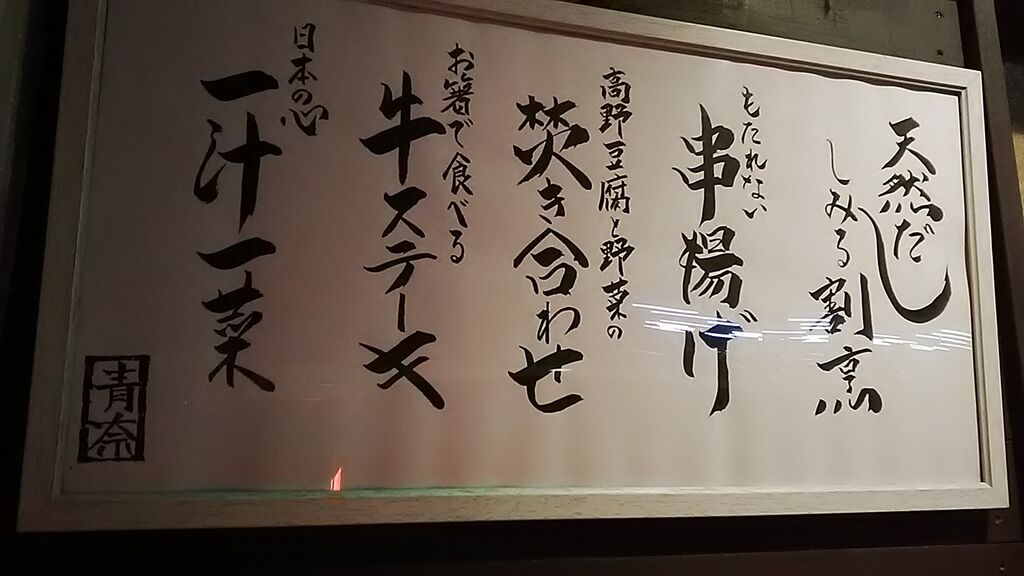 天然だし
しみる割烹
もたれない
串揚げ
高野豆腐と野菜の
焚き合わせ
お箸で食べる
牛ステーキ
日本の心
一汁一菜
青奈